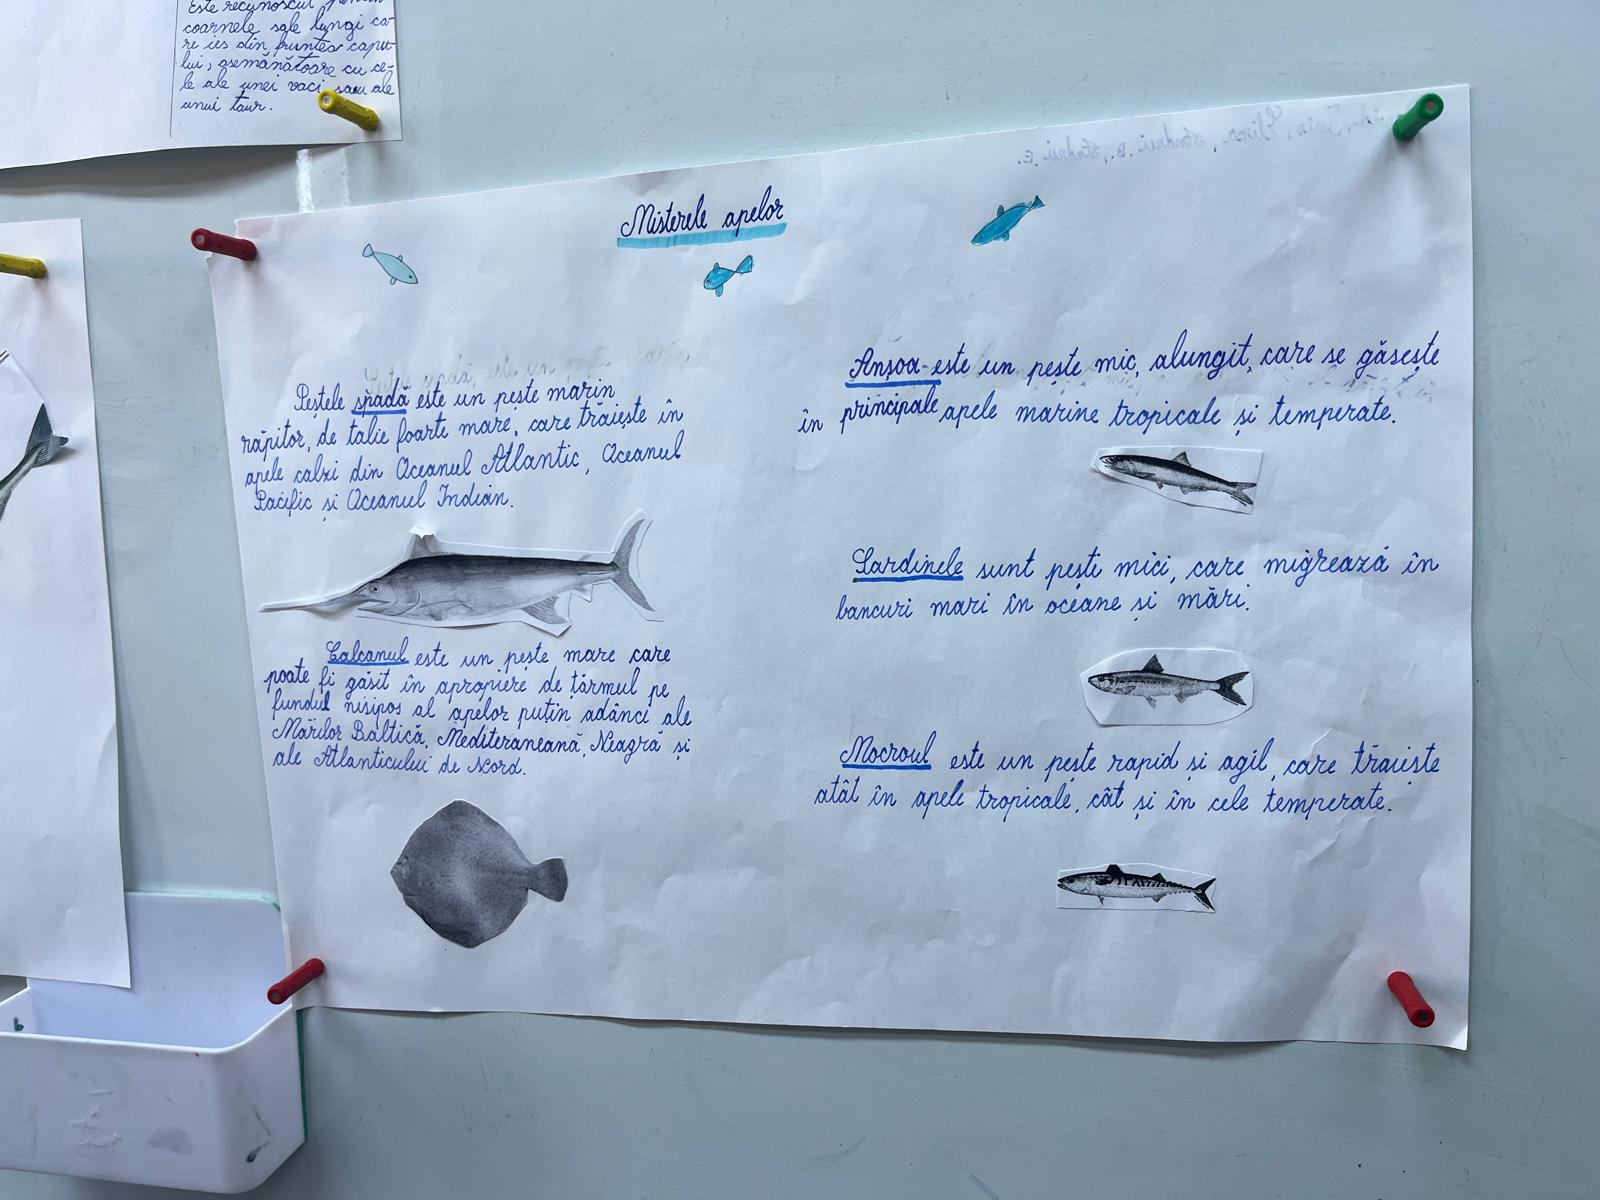 Este recunoscut
coarnele sale lungi ca-
re ies din fruntea capu-
lui, asemănătoare cu ce-
le ale unei vaci sau ale
unui taur.
Misterele apelor
Peștele spadă este un pește marin
răpitor, de talie foarte mare, care trăiește în
apele calzi din Oceanul Atlantic, Oceanul
Pacific și Oceanul Indian.
Calcanul este un pește mare care
poate fi găsit în apropiere de țărmul pe
fundul nisipos al apelor puțin adânci ale
Mărilor Baltică, Mediteraneană, Neagră și
ale Atlanticului de Nord.
Anșoa-este un pește mic, alungit, care se găsește
în principale apele marine tropicale și temperate.
Sardinele sunt pești mici, care migrează în
bancuri mari în oceane și mări.
Mocroul este un pește rapid și agil, care trăiește
atât în apele tropicale, cât și în cele temperate.
Ioia, Eliza, Andrui, Andrui B., Andrii E.